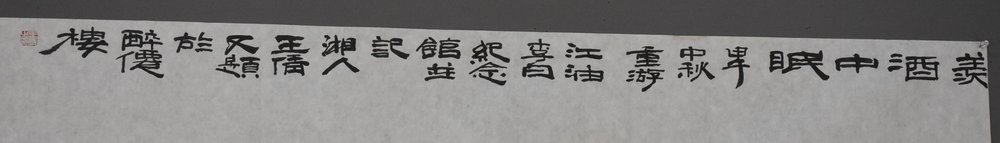 羨酒中眠中秋重游江油李白紀念館並記湘人王僑又題於醉僊樓